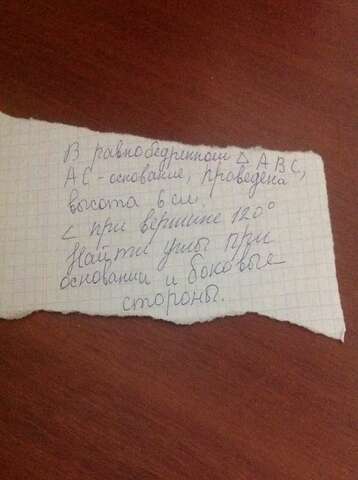 В равнобедренном △ ABC,
AC - основание, проведена
высота 6 см,
∠ при вершине 120°
Найти углы при
основании и боковые
стороны.